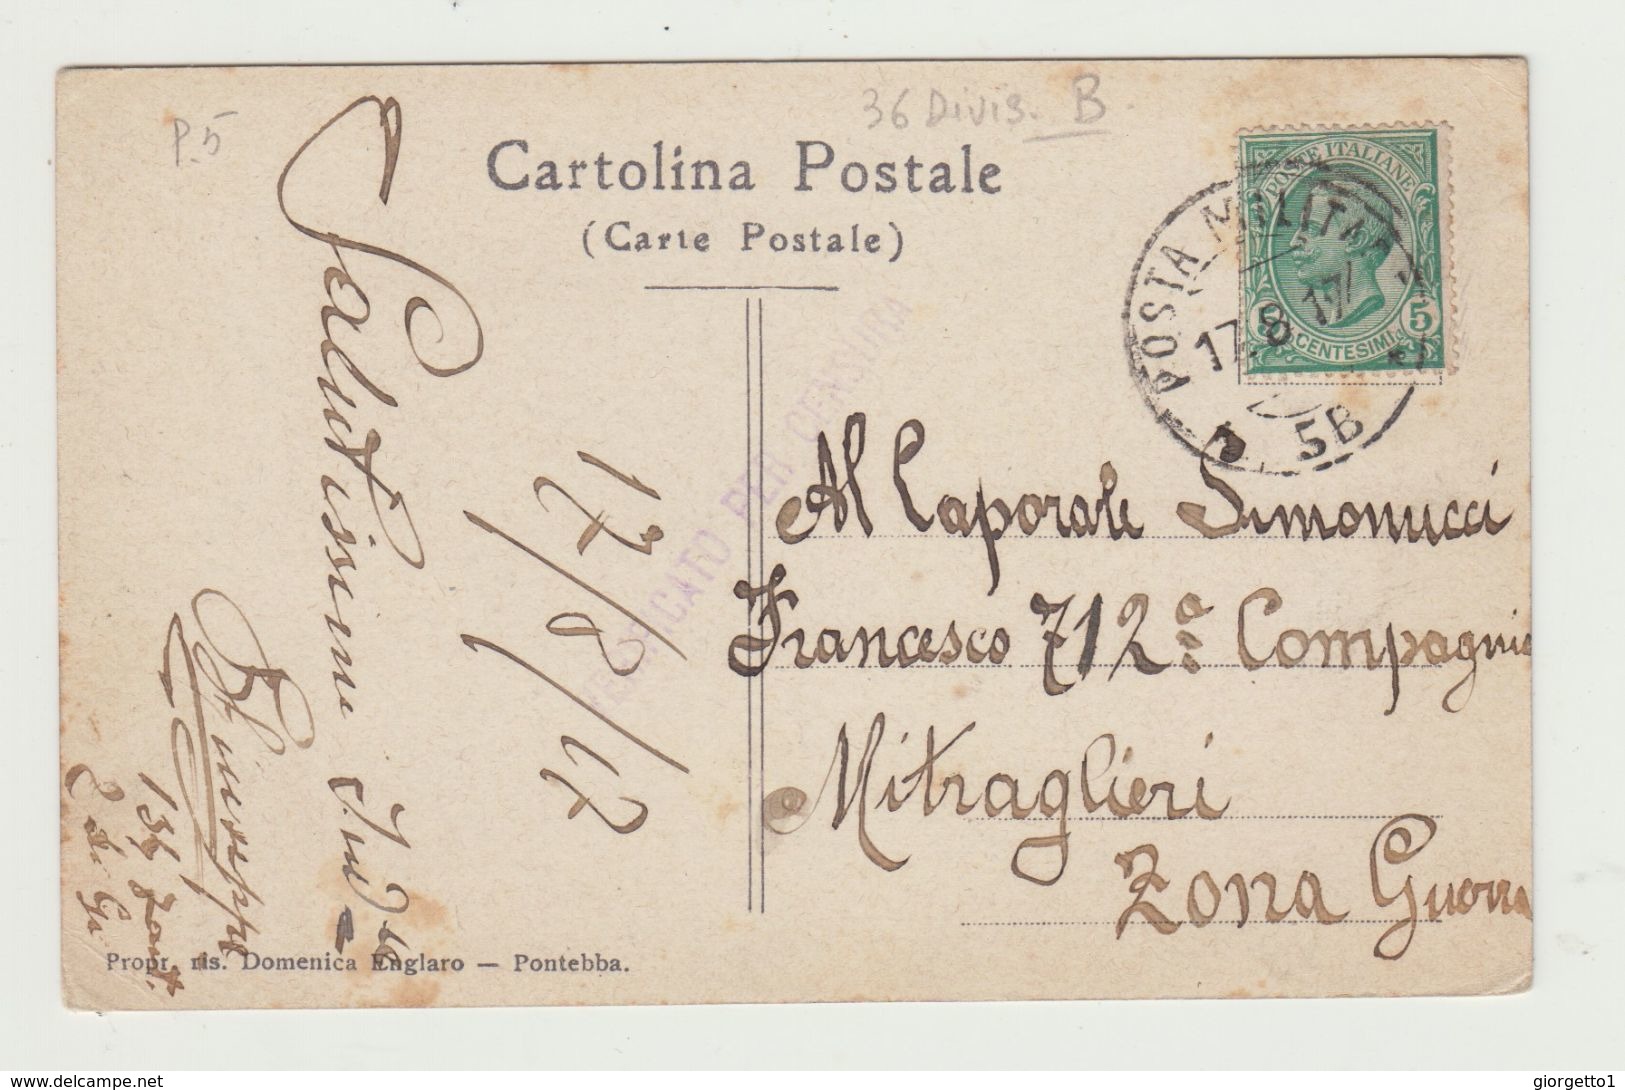 P.5
36 Divis. B.
Cartolina Postale
(Carte Postale)
POSTE ITALIANE
CENTESIMI 5
POSTA MILITAR
17.8 17
5B
VERIFICATO PER CENSURA
Al Caporale Simonucci
Francesco 712ª Compagnia
Mitraglieri
Zona Guerra
17/8/17
Salutissimi
Giuseppe
Propr. ris. Domenica Englaro — Pontebba.
www.delcampe.net
giorgetto1